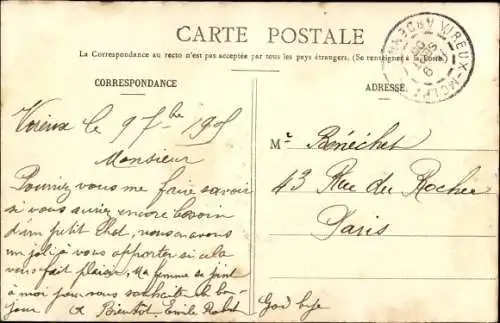 CARTE POSTALE
La Correspondance au recto n'est pas acceptée par tous les pays étrangers. (Se renseigner à la Poste.)
CORRESPONDANCE
ADRESSE
VIREUX-MOLH
Vireux le 9 7bre 1905
Monsieur
Pourriez vous me faire savoir
si vous auriez encore besoin
d'un petit Chat, nous en avons
un joli à vous apporter si cela
vous fait plaisir, Ma femme se joint
à moi pour vous souhaiter le bon-
jour
A Bientôt, Emile
Mr Bénéchet
43 Rue du Rocher
Paris
Good bye